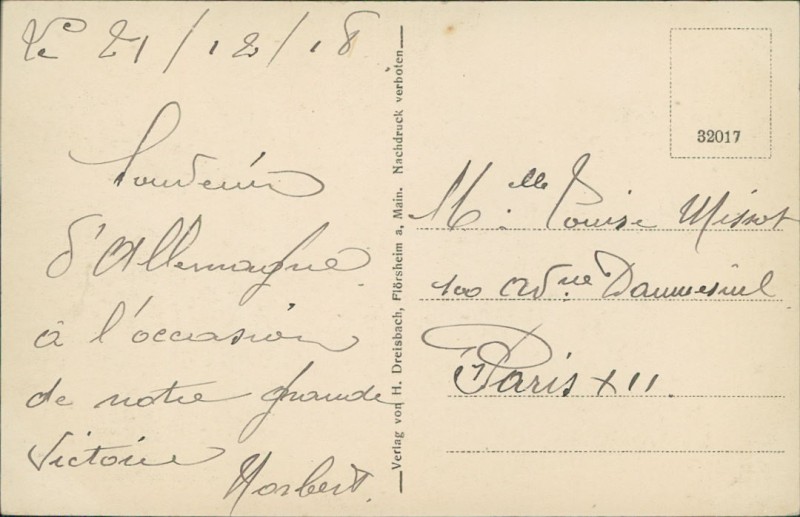 Le 21/12/18
Souvenir
d'Allemagne
à l'occasion
de notre grande
Victoire
Norbert.
Verlag von H. Dreisbach, Flörsheim a, Main. Nachdruck verboten
32017
M.elle Louise Missot
100 Av.nue Daumesnil
Paris XII.